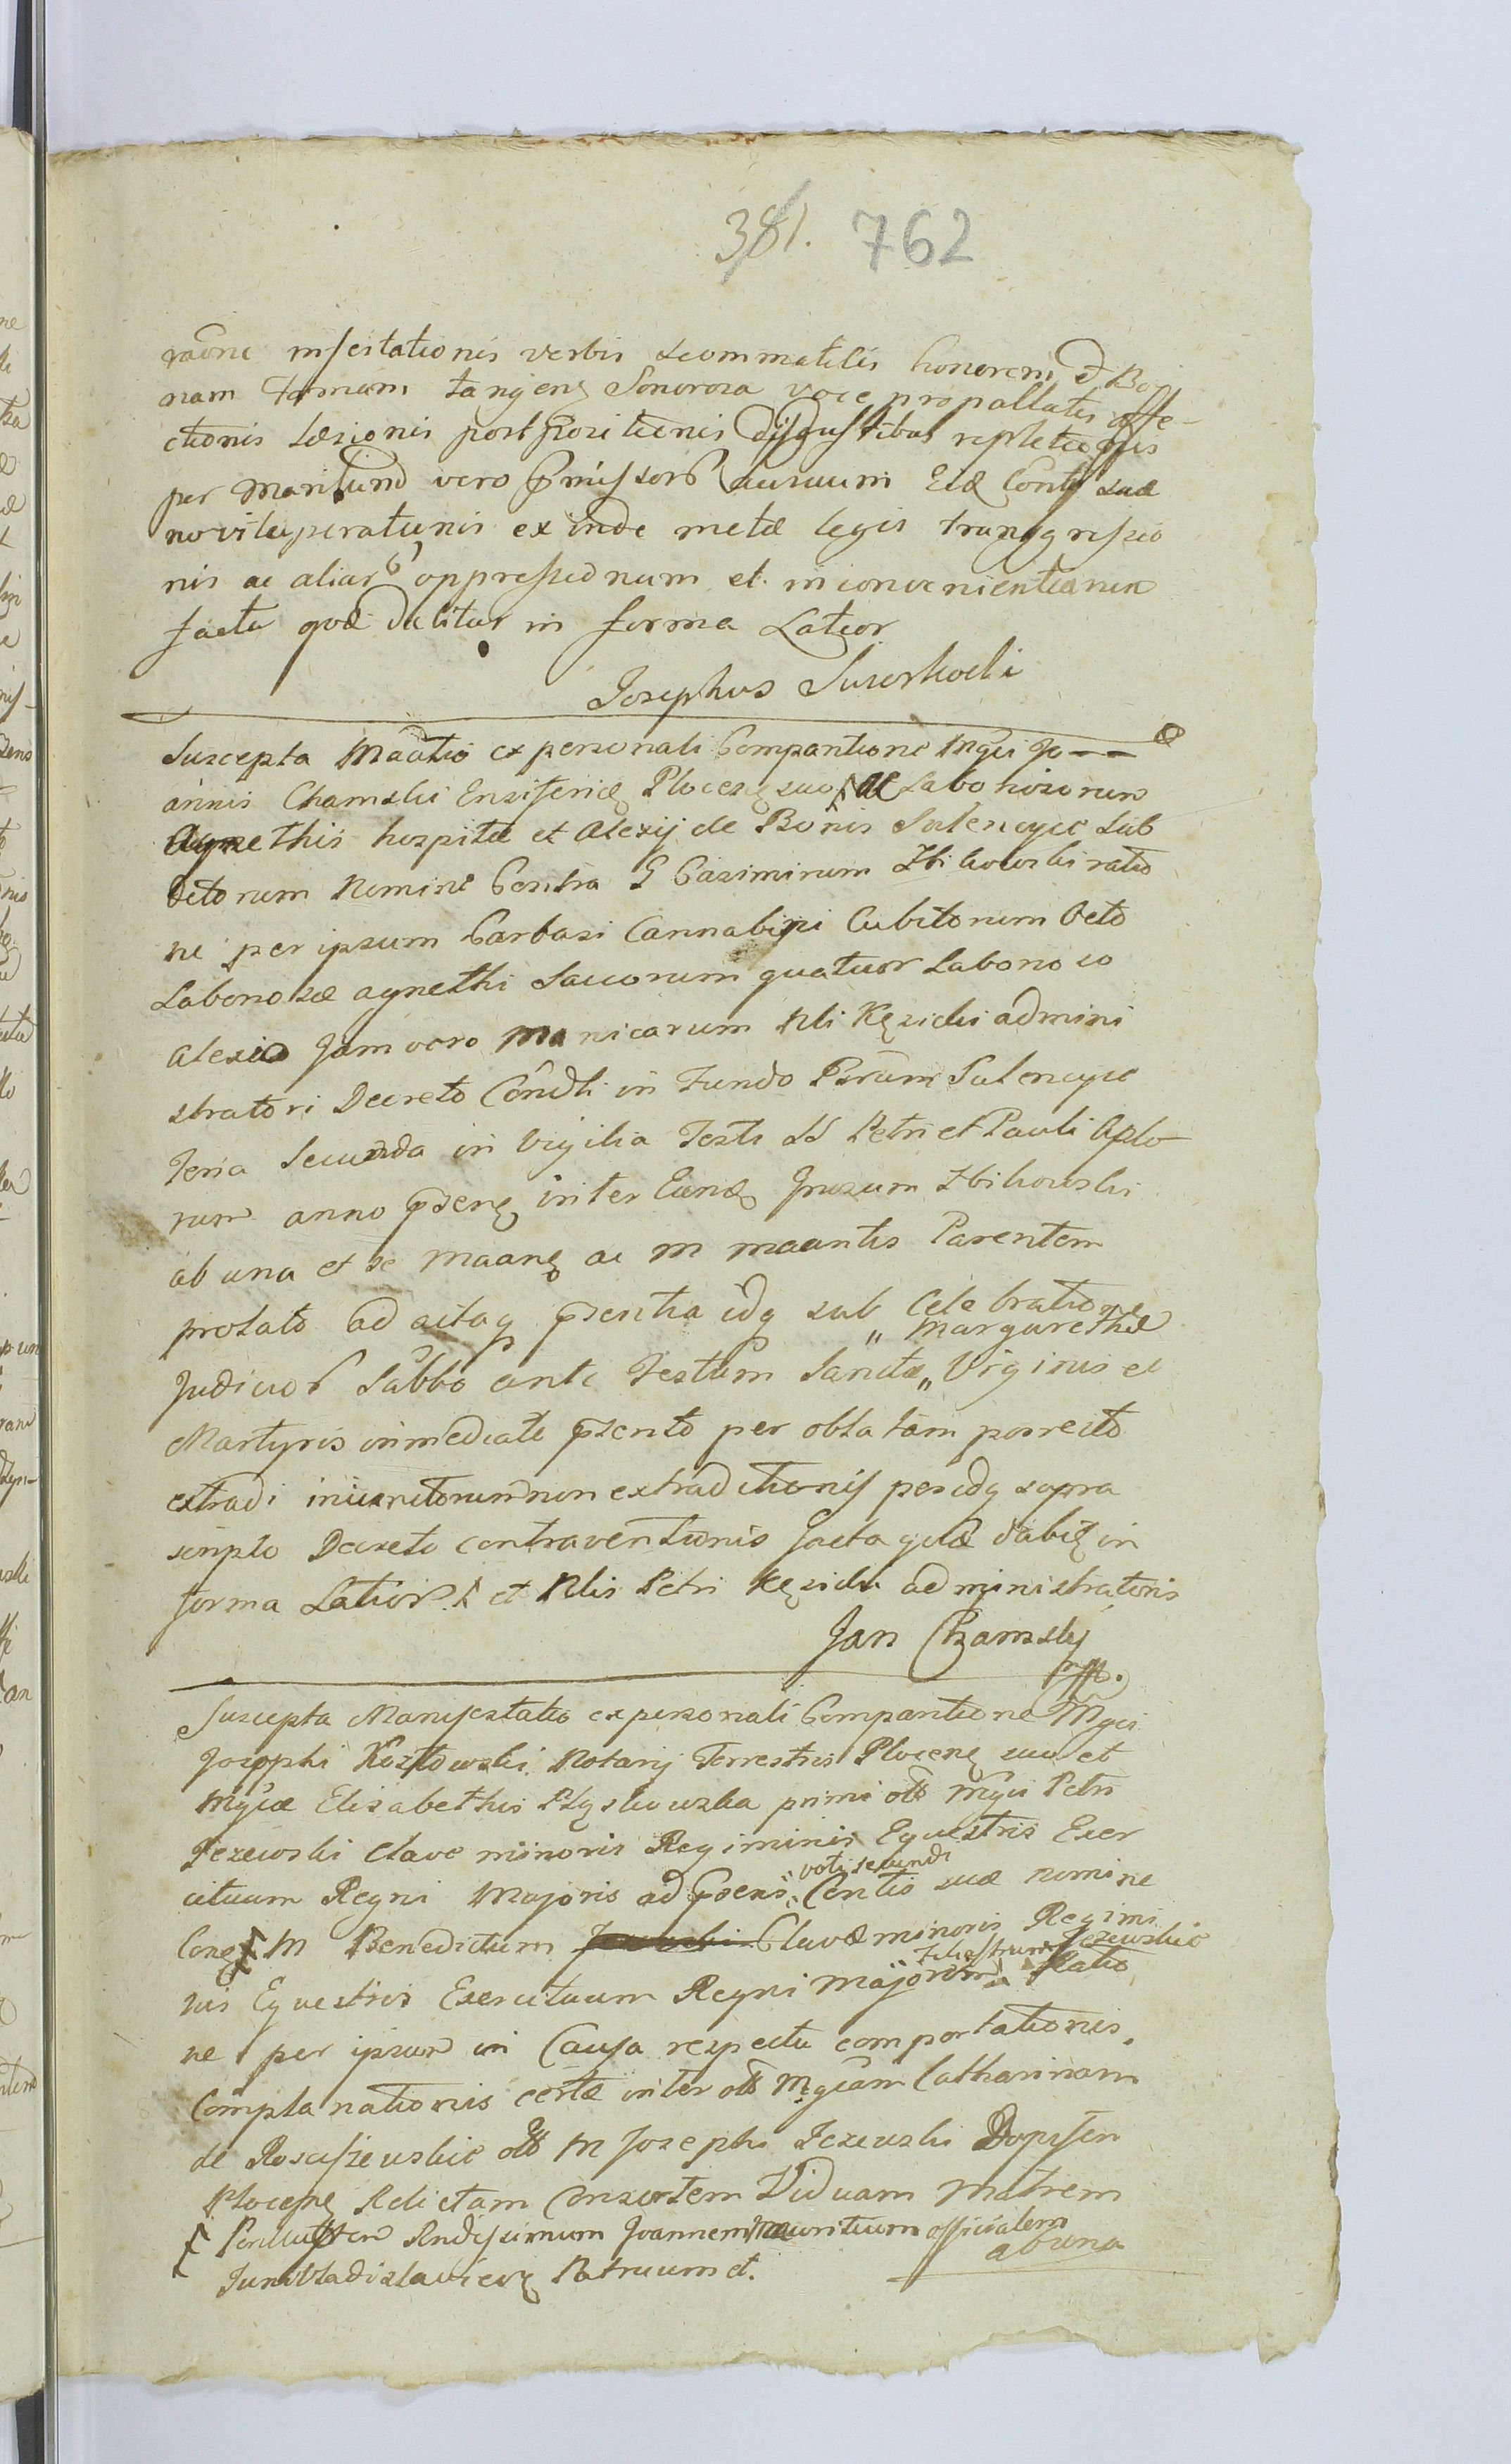 381. 762
raône inscitationis verbis scommatilis honorem & Bo
nam Famam tangenę Sonorosa voce propallatis affe-
ctionis Læsionis postpositionis disgustibus repletionis
per Maritum vero pmissorb Ei̯dę Contĝ suæ
no vituperationis ex inde metæ legis transgressio
nis ac aliarb oppressionum et inconvenientiarum
facta qvæ dabitur in forma Latior
Josephus
Suscepta Maâtio ex personali Comparitione Mgci Jo--
annis Chamski Ensiferidę Plocesę suo ac Laboriosorum
Agnethis hospitæ et Alexij de Bonis Sulencyce Sub
ditorum Nomine Contra G Casimirum Zbikowski ratio
ne per ipsum Carbasi Cannabini Cubitorum Octo
Laboriosæ agnethi Saccorum quatuor Laborioso
Alexio Jam vero Manicarum Nli Kęsicki admini
stratori Decreto Côndli in Fundo Bnorum Sulencyce
Feria Secunda in Vigilia Festi SS Petri et Pauli Aplo
rum anno pseng inter Eundę Grosum Zbikowski
ab una et se maanę ac M maantis Parentem
prolato ad acta q psentia idq sub Celebratione
Judiciorb Sabbo ante Festum Sanctæ „ Margarethæ „ Virginis et
Martyris immediate psento per oblatam porrecto
extradi non extraditionis per idq supra
scripto Decreto contraventionis facta quæ dabitę in
forma Latiori / et Nlis Petri Kęsicki administratoris
Jan Chamsky
mp.
Suscepta Manifestatio ex personali Comparitione Mgci
Josephi Kozłowski Notarij Terrestris Plocenę suo et
Mgcæ Elisabethis Płąskowska primi olb Mgci Petri
Jezewski Clave minoris Regiminis Equestris Exer
cituum Regni Majoris ad psens voti secundi Contis suæ nomine
Conę M Benedictum Clavæ minoris Regimi
nis Equestris Exercituum Regni Majorem Jezewskie Ratio
ne per ipsum in Causa respectu comportationis
Complanationis certæ inter olb Mgcam Catharinam
de Rosciszewskie olb M Josephi Jezewski Dapifen
Plocenę Relictam Consortem Viduam Matrem
Perillustren Rndissimum Joannem Mauritium officialem
ab una
Juni Vladislaviesę Patruum et.